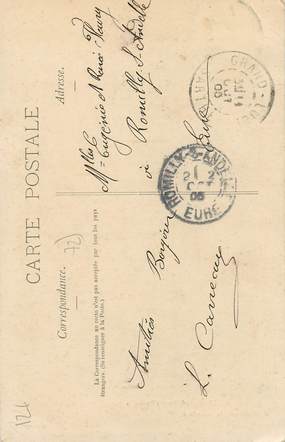 CARTE POSTALE
Correspondance.
Adresse.
La Correspondance au recto n'est pas acceptée par tous les pays
étrangers. (Se renseigner à la Poste.)
72
Amitiés
Bonjour
L. Carreau
Mlles
Eugénie et Fleury
à Romilly s/ Andelle
Eure
GRAND
ROMILLY-S-ANDELLE
21
OCT
05
EURE
124